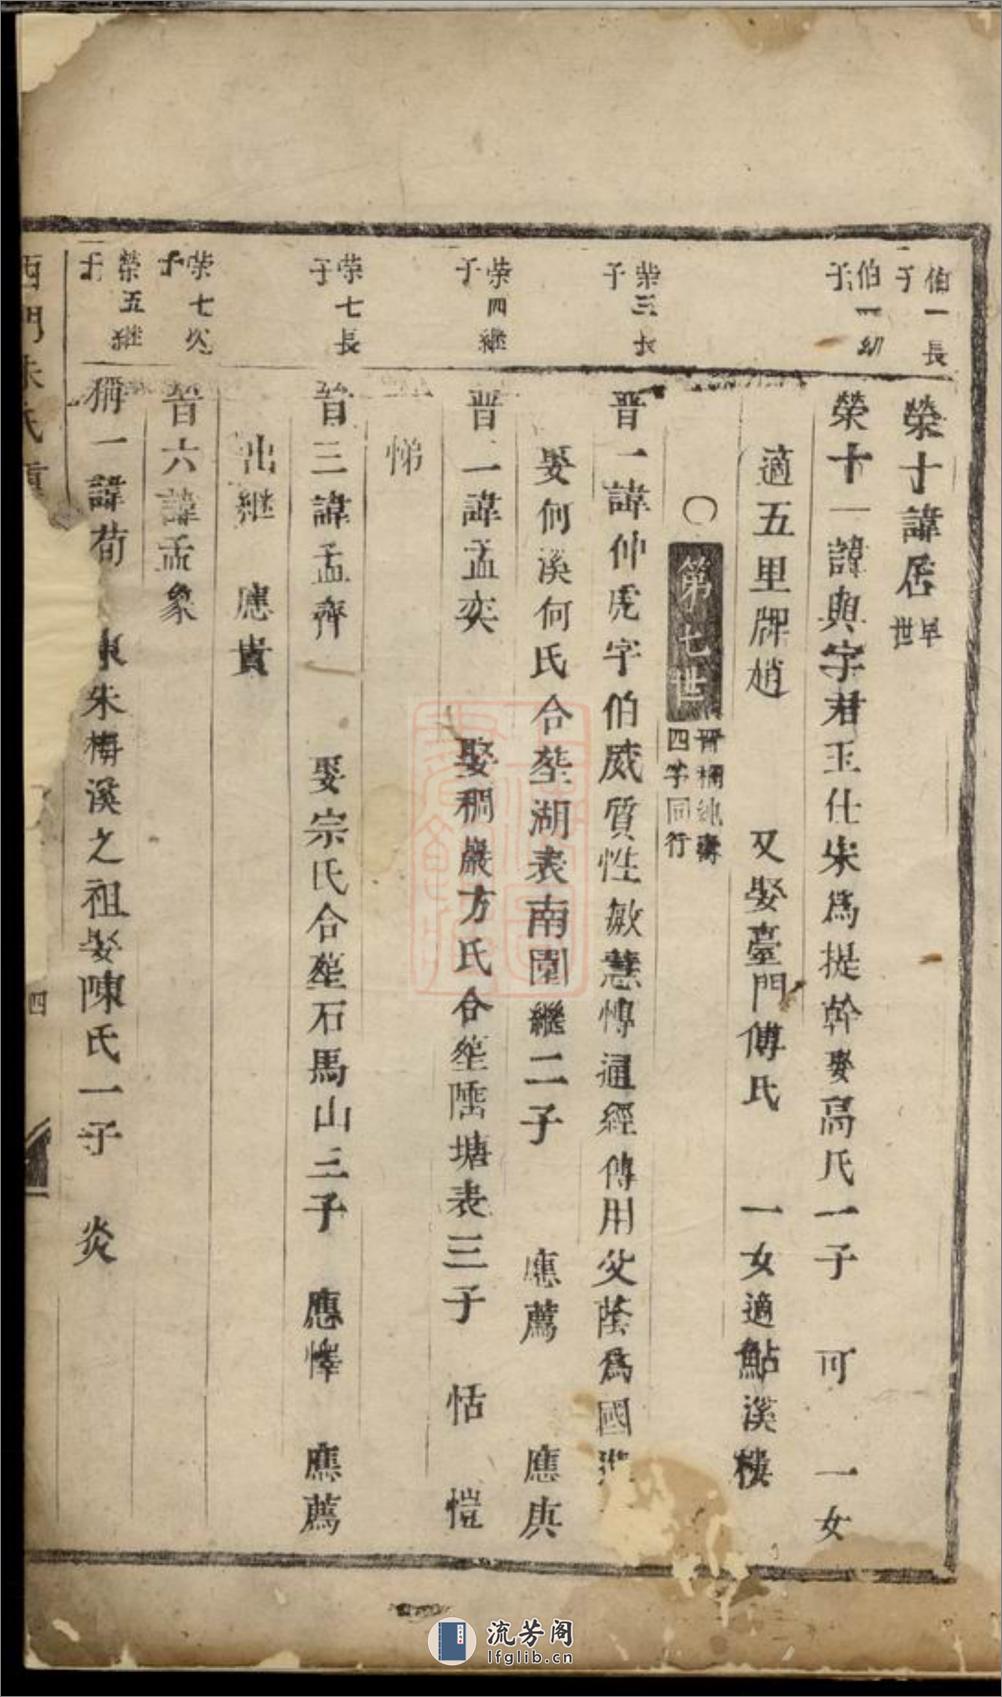 伯一長子
榮十諱居早世
伯一幼子
榮十一諱與字君玉仕宋為提幹娶高氏一子 可 一女
適五里牌趙 又娶臺門傅氏 一女適鮎溪樓
○第七世
四字同行
榮三長子
晋一諱仲虎字伯威質性敏慧慱通經傳用父蔭為國
娶何溪何氏合塟湖表南園繼二子 應薦 應庚
榮四繼子
晋一諱孟奕 娶稠巖方氏合塟塘表三子 恬 愷
悌
榮七長子
晋三諱孟齊 娶宗氏合塟石馬山三子 應懌 應薦
出繼 應貴
榮七次子
晋六諱孟象
榮五繼子
稱一諱荀 東朱梅溪之祖娶陳氏一子 炎
西門朱氏
四
流芳阁
lfglib.cn